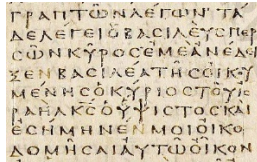 ΓΡΑΠΤΩΝΛΕΓΩΝ·ΤΑ
ΔΕΛΕΓΕΙΟΒΑΣΙΛΕΥΣΠΕΡ
ΣΩΝΚΥΡΟΣΕΜΕΑΝΕΔΕΙ
ΞΕΝΒΑΣΙΛΕΑΤΗΣΟΙΚΟΥ
ΜΕΝΗΣΟΚΥΡΙΟΣΤΟΥΙΣ
ΡΑΗΛΚΣΟΥΨΙΣΤΟΣΚΑΙ
ΕΣΗΜΗΝΕΝΜΟΙΟΙΚΟ
ΔΟΜΗΣΑΙΑΥΤΩΟΙΚΟΝ